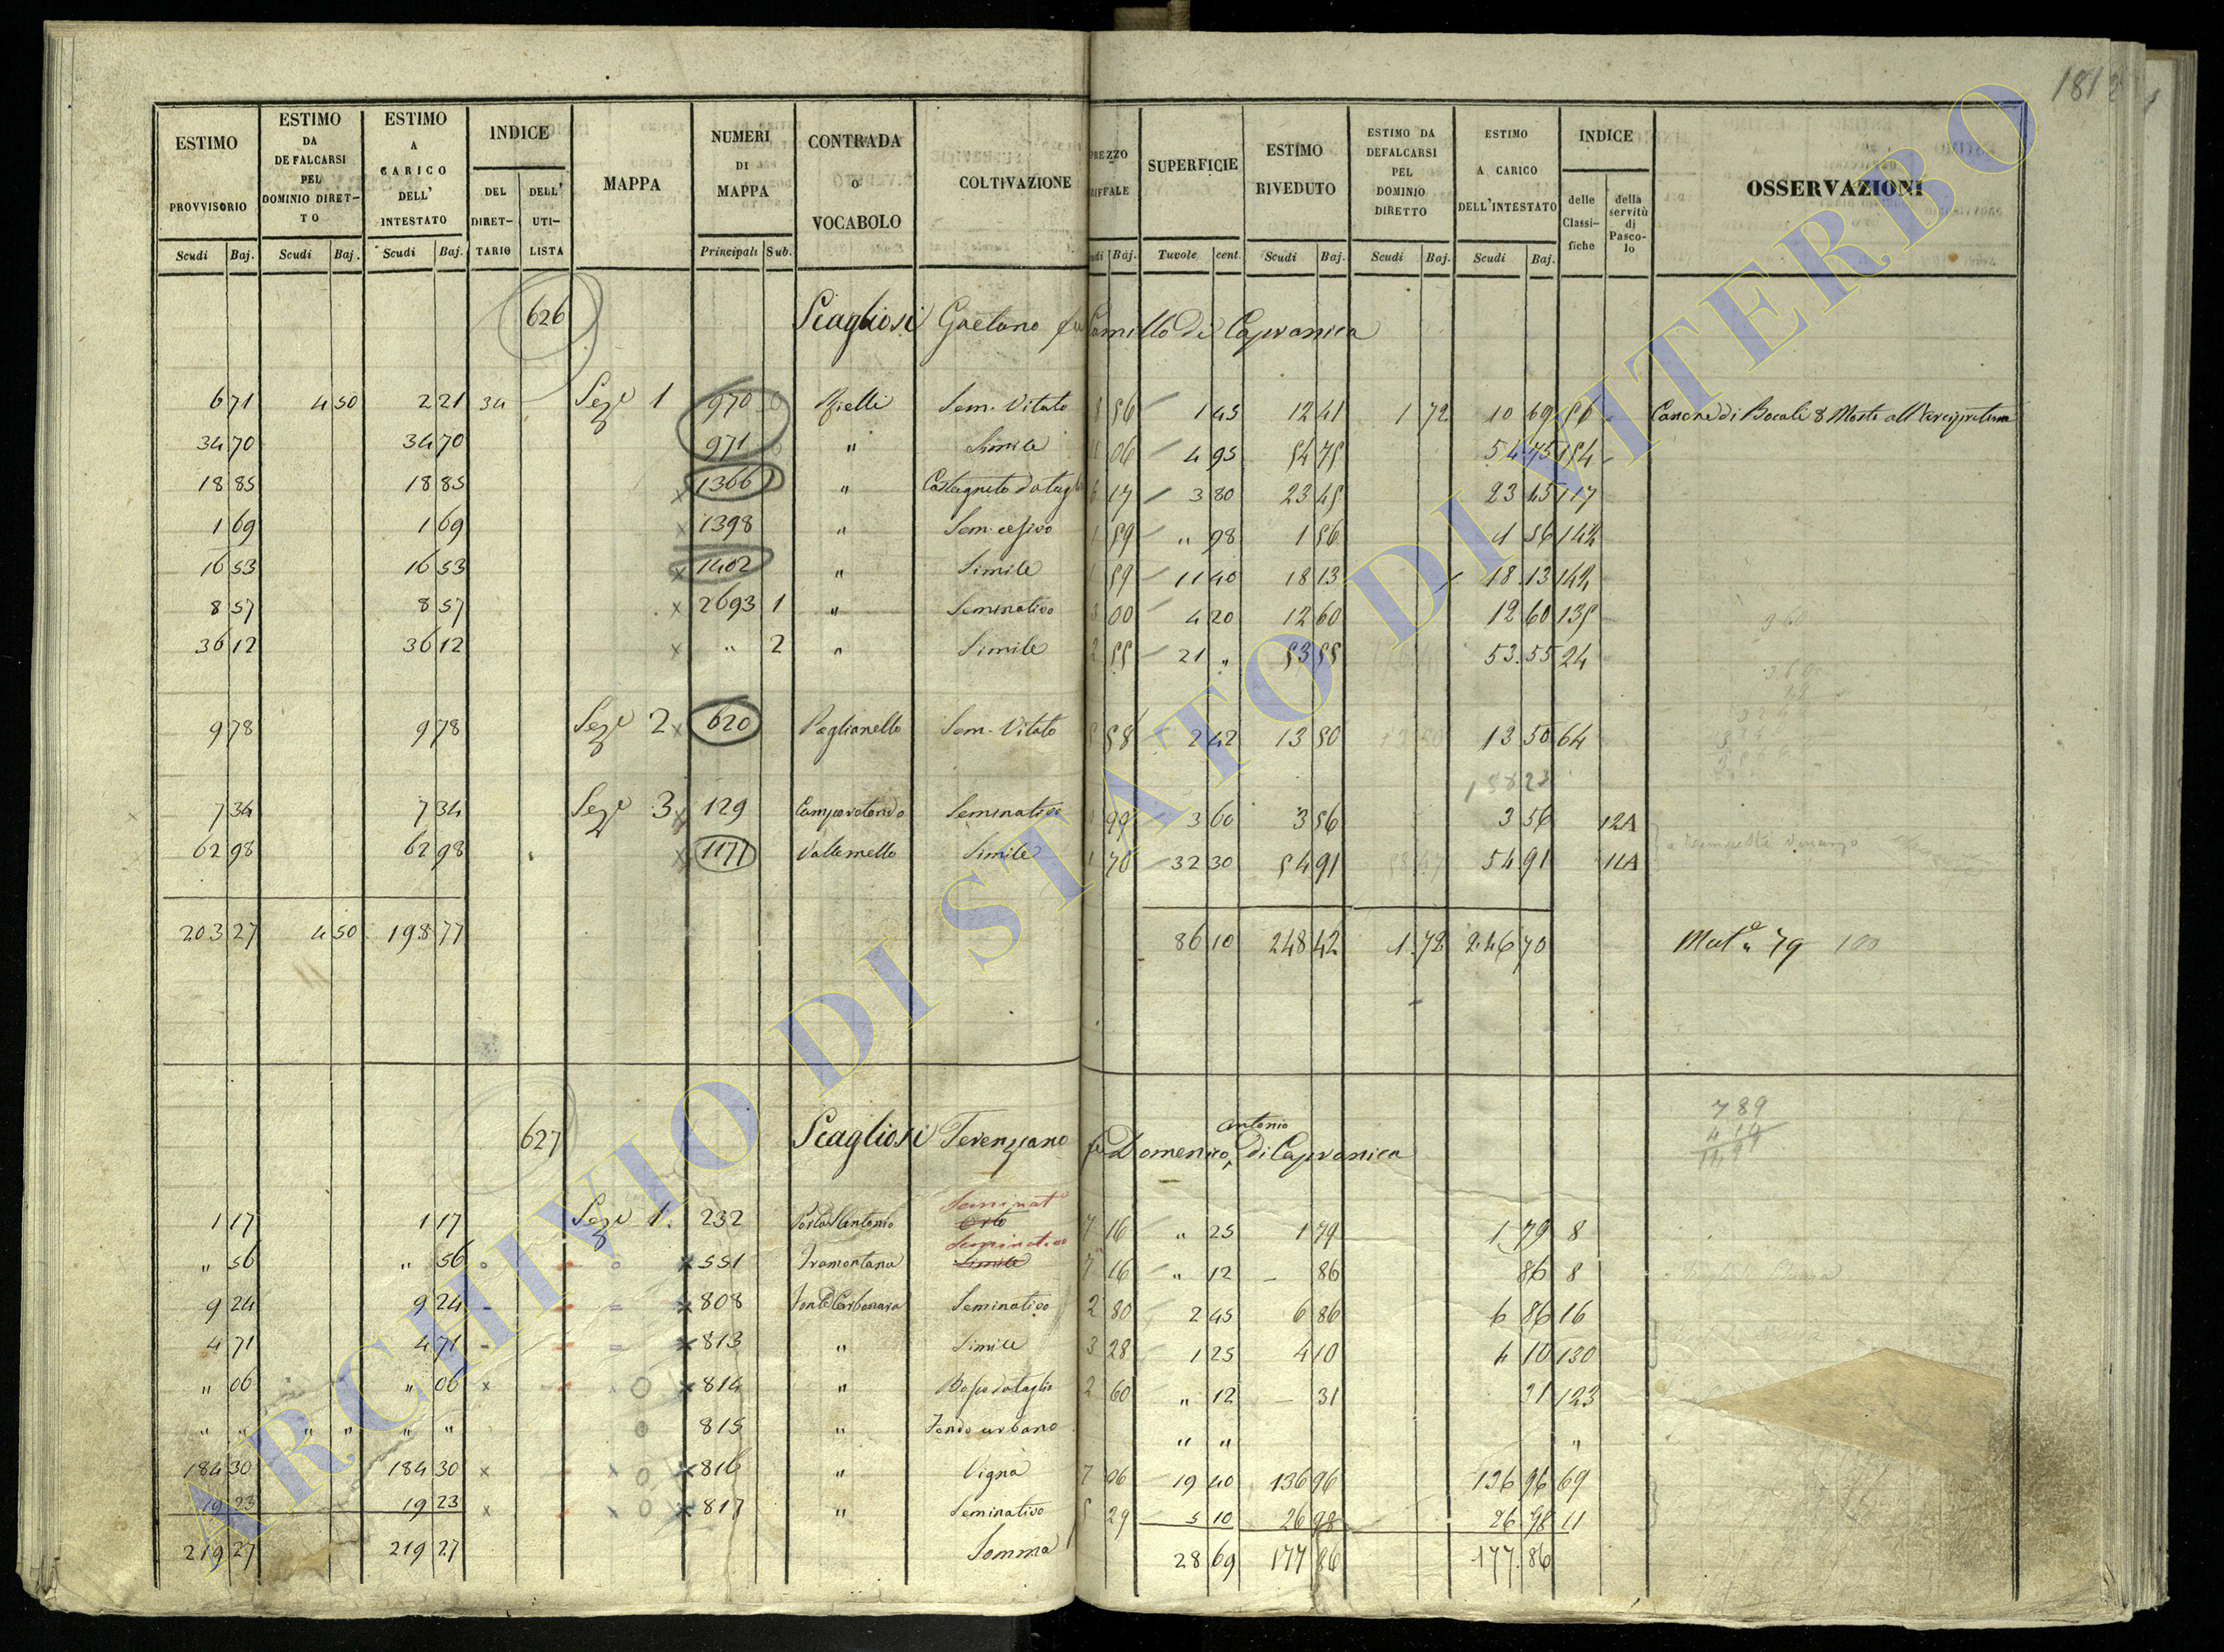 181
ESTIMO PROVVISORIO Scudi Baj.
ESTIMO DA DEFALCARSI PEL DOMINIO DIRETTO Scudi Baj.
ESTIMO A CARICO DELL' INTESTATO Scudi Baj.
INDICE DEL DIRETTARIO DELL' UTILISTA
MAPPA
NUMERI DI MAPPA Principali Sub.
CONTRADA O VOCABOLO
COLTIVAZIONE
PREZZO Baj.
SUPERFICIE Tavole cent.
ESTIMO RIVEDUTO Scudi Baj.
ESTIMO DA DEFALCARSI PEL DOMINIO DIRETTO Scudi Baj.
ESTIMO A CARICO DELL'INTESTATO Scudi Baj.
INDICE delle Classifiche della servitù di Pascolo
OSSERVAZIONI
626 Scagliosi Gaetano fu Camillo di Capranica
6 71 4 50 2 21 34 Seze 1 970 Sem. Vitato 56 1 45 12 41 1 72 10 69
34 70 34 70 971 " Simile 06 4 95 54 75 54 75 154
18 85 18 85 x 1366 " Castagneto da taglio 6 17 3 80 23 45 23 45 117
1 69 1 69 x 1398 " Sem. cesivo 1 59 " 98 1 56 1 56 142
16 53 16 53 x 1402 " Simile 1 59 11 40 18 13 18 13 142
8 57 8 57 x 2693 1 " Seminativo 3 00 4 20 12 60 12 60 135
36 12 36 12 x " 2 " Simile 2 55 21 " 53 55 53 55 24
9 78 9 78 Seze 2 x 620 Paglianello Sem. Vitato 5 58 2 42 13 50 13 50 64
7 34 7 34 Seze 3 x 129 Camporotondo Seminativo 99 3 60 3 56 3 56 12A
62 98 62 98 x 1177 Vallemello Simile 1 70 32 30 54 91 54 91 11A
203 27 4 50 198 77 86 10 248 42 1 72 246 70 79 100
627 Scagliosi Terenziano fu Domenico Antonio di Capranica
789
1 17 1 17 Seze 1. 232 Porta S Antonio Seminat Orto 7 16 " 25 1 79 1 79 8
" 56 " 56 551 Tramontana Seminativo Simile 7 16 " 12 86 86 8
9 24 9 24 808 Fonte Carbonara Seminativo 2 80 2 45 6 86 6 86 16
4 71 4 71 813 " Simile 3 28 1 25 4 10 4 10 130
" 06 " 06 x 814 " Bosco da taglio 2 60 " 12 31 31 123
" " " " " " 815 " Fondo urbano " " "
184 30 184 30 x 816 " Vigna 7 06 19 40 136 96 136 96 69
19 23 19 23 x 817 " Seminativo 5 29 5 10 26 98 26 98 11
219 27 219 27 Somma 28 69 177 86 177 86
ARCHIVIO DI STATO DI VITERBO